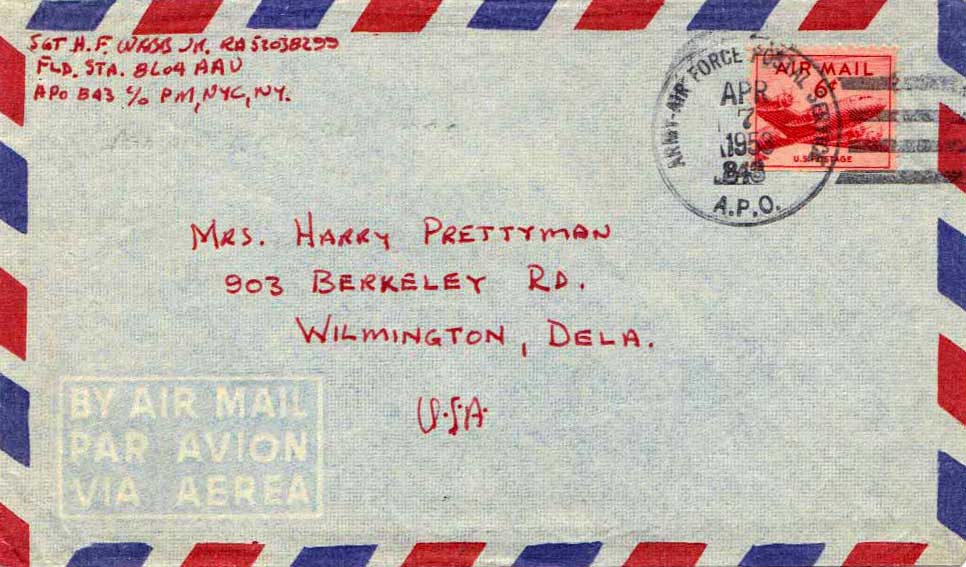 SGT H. F. WEBB JR. RA 52038299
FLD. STA. 8604 AAU
APO 843 c/o PM, NYC, NY.
ARMY-AIR FORCE POSTAL SERVICE
APR
7
1953
843
A.P.O.
AIR MAIL
6¢
U.S. POSTAGE
MRS. HARRY PRETTYMAN
903 BERKELEY RD.
WILMINGTON, DELA.
U.S.A.
BY AIR MAIL
PAR AVION
VIA AEREA